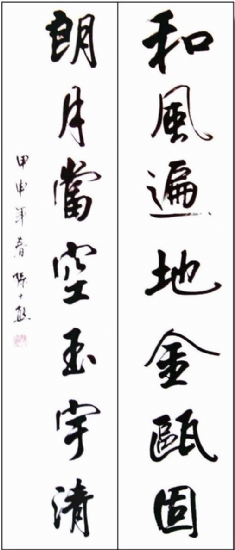 和風遍地金甌固
朗月當空玉宇清
甲申年春